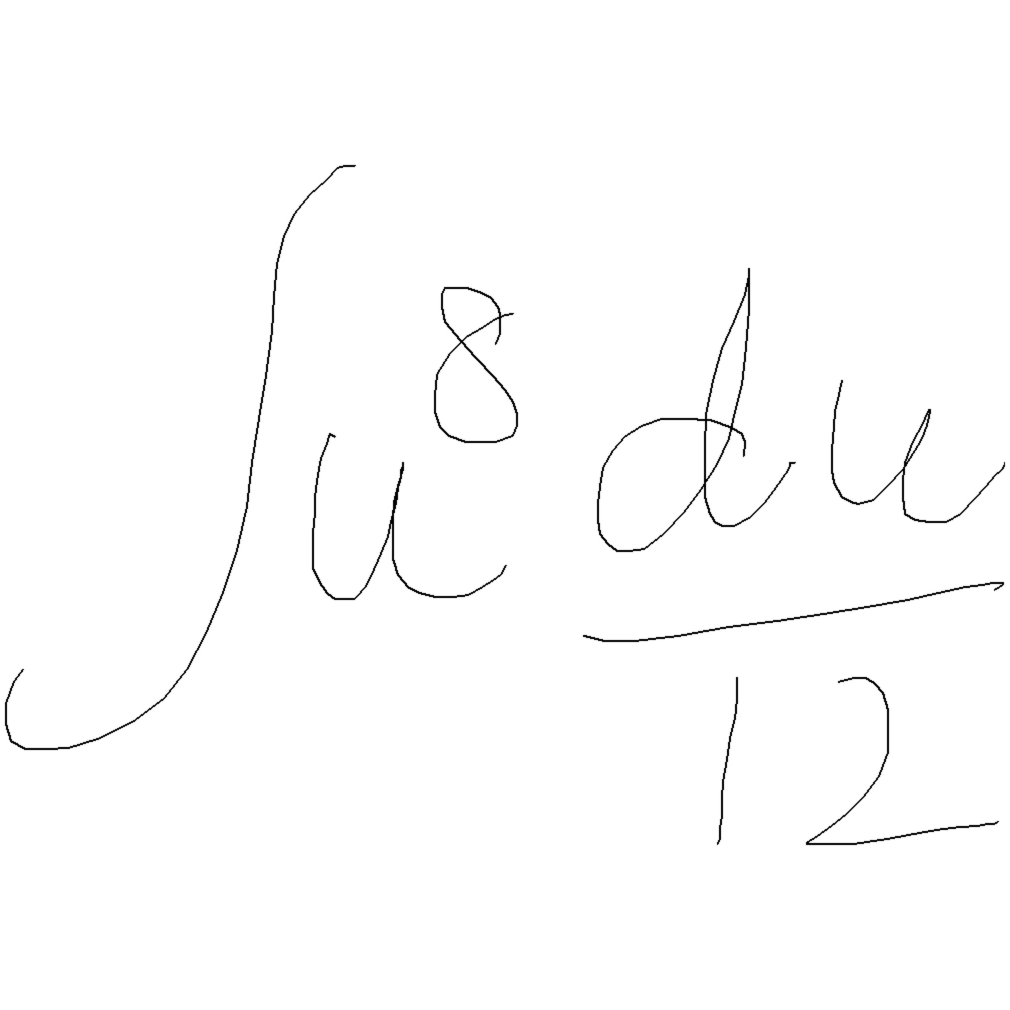 ∫ u^8 \frac{du}{12}